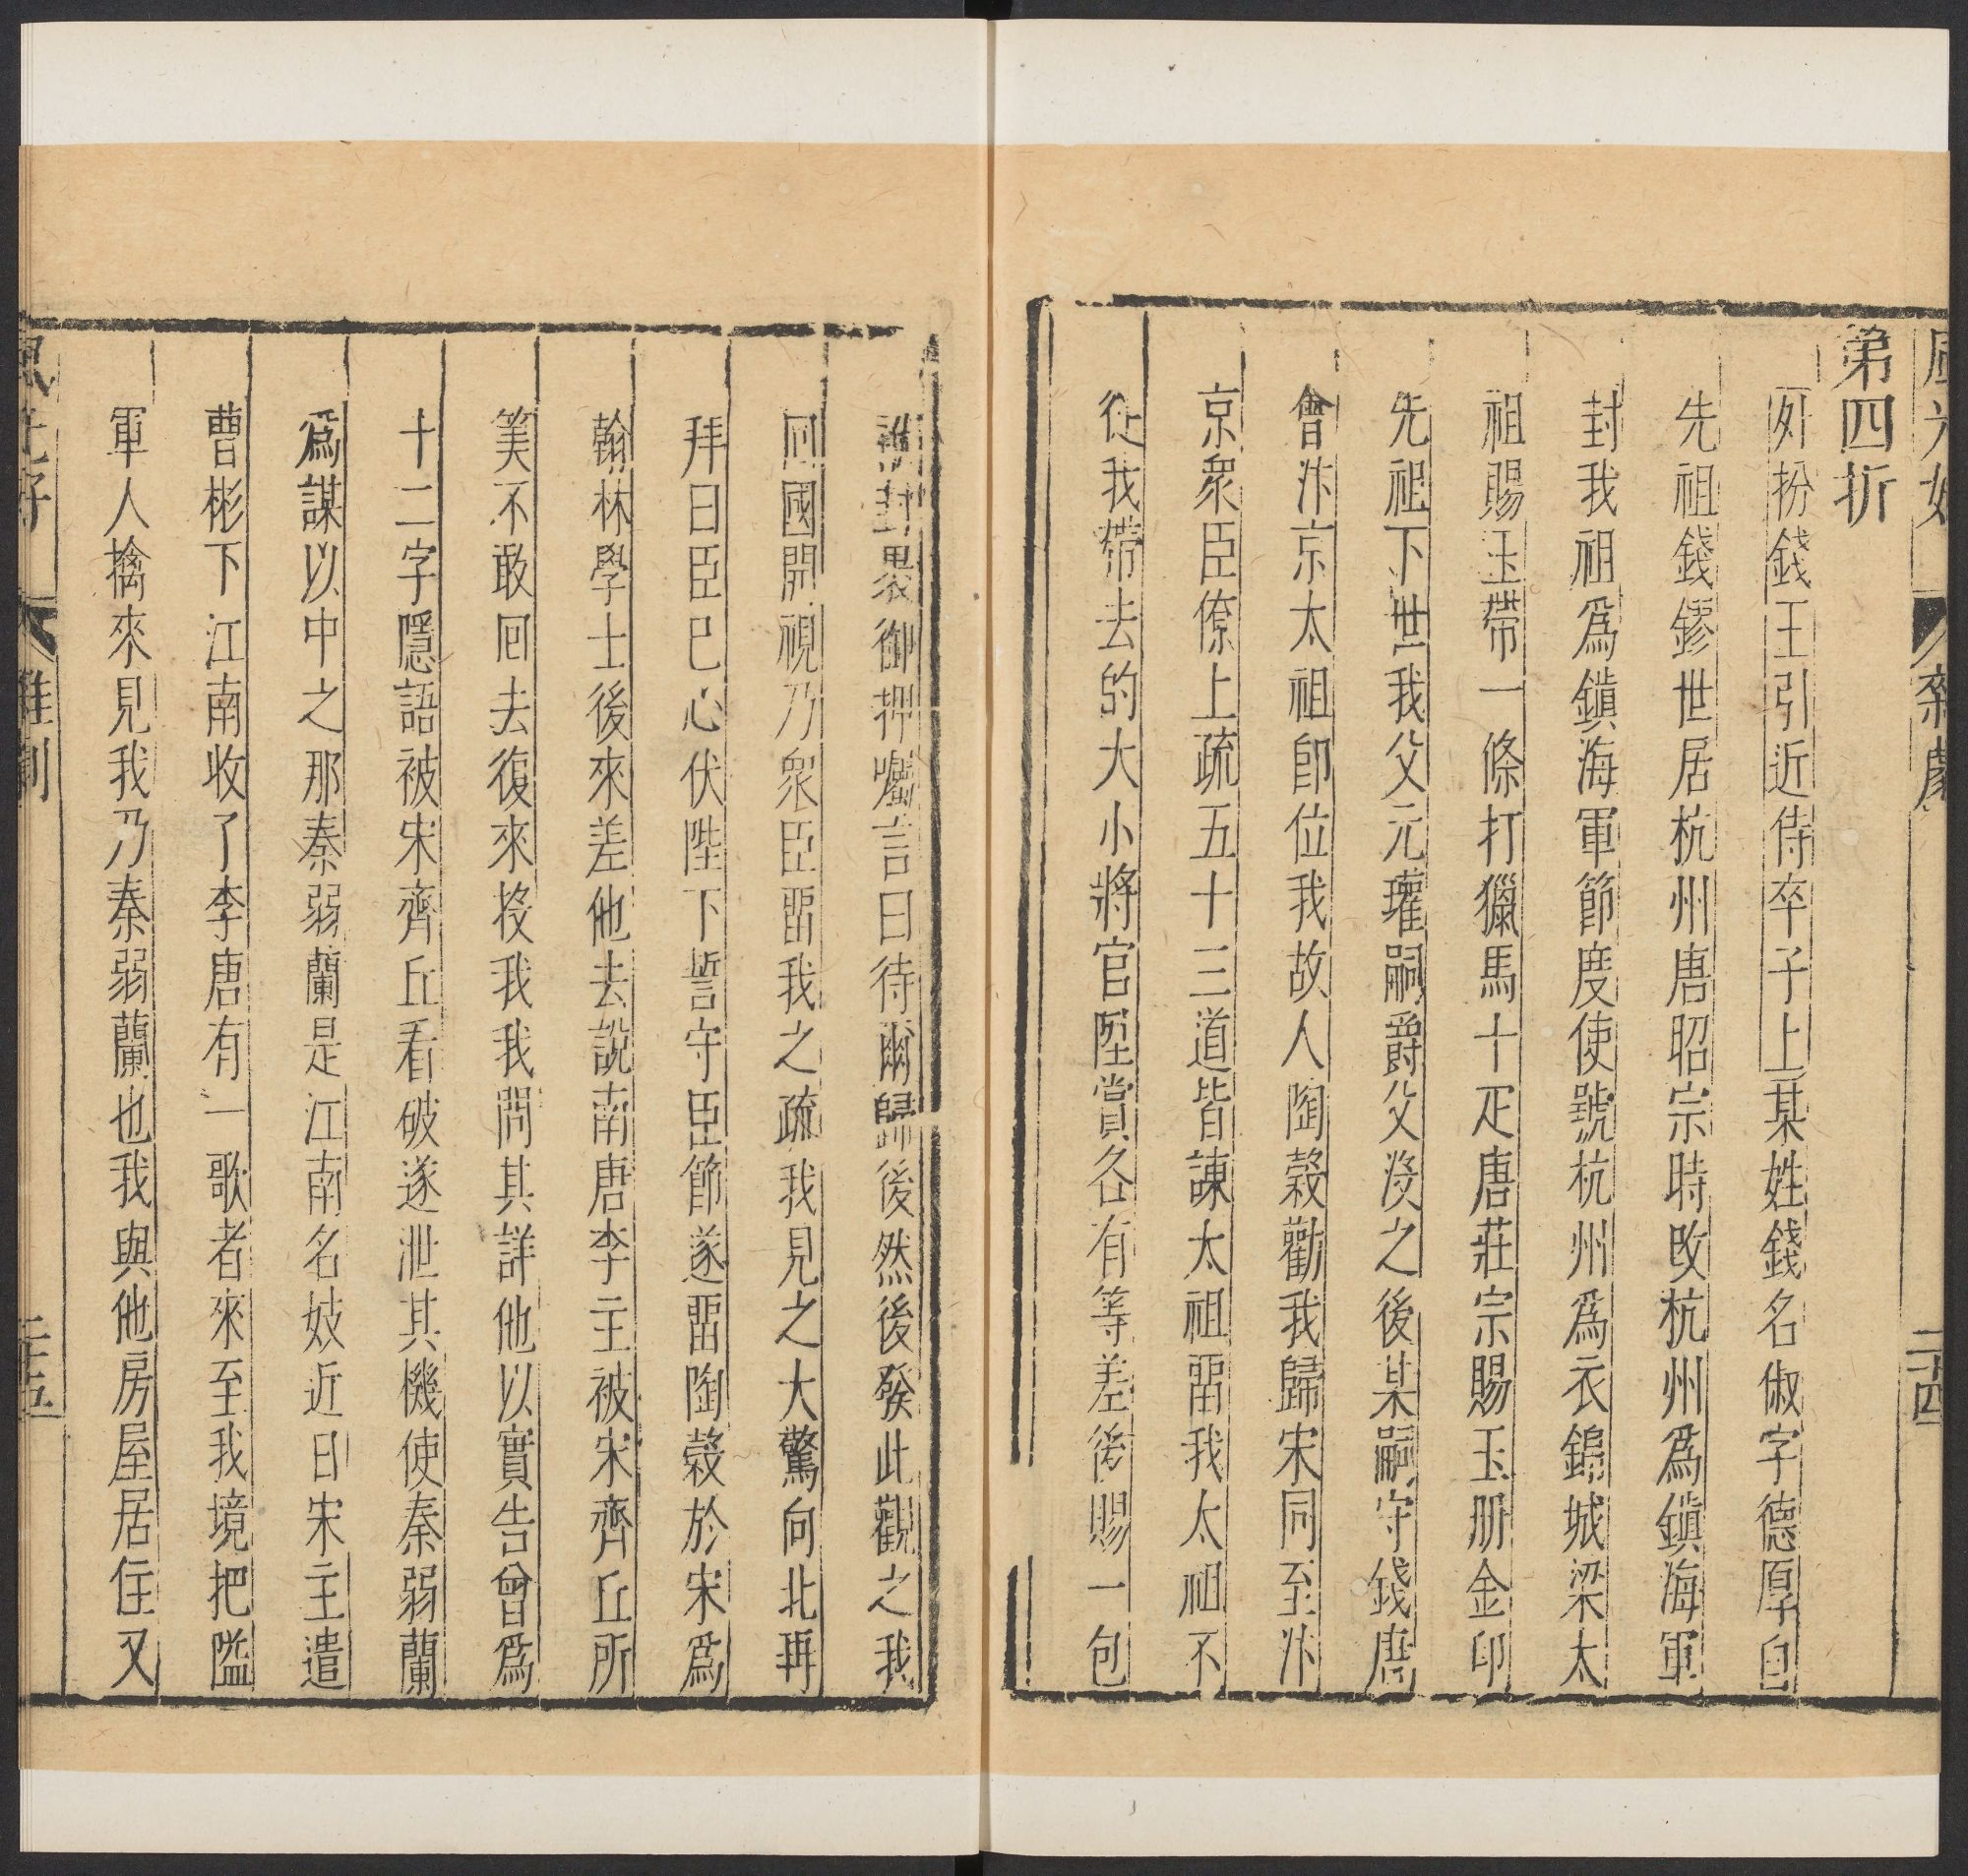 第四折
外扮錢王引近侍卒子上某姓錢名俶字德厚自
先祖錢鏐世居杭州唐昭宗時改杭州爲鎮海軍
封我祖爲鎮海軍節度使號杭州爲衣錦城梁太
祖賜玉帶一條打獵馬十疋唐莊宗賜玉册金印
先祖下世我父元瓘嗣爵父沒之後某嗣守錢唐
會汴京太祖即位我故人陶穀勸我歸宋同至汴
京衆臣僚上疏五十三道皆諫太祖畱我太祖不
從我帶去的大小將官陞賞各有等差後賜一包
袱封裹御押囑言曰待爾歸後然後發此觀之我
囘國開視乃衆臣畱我之疏我見之大驚向北再
拜曰臣已心伏陛下誓守臣節遂畱陶穀於宋爲
翰林學士後來差他去說南唐李主被宋齊丘所
筭不敢囘去復來投我我問其詳他以實告曾爲
十二字隱語被宋齊丘看破遂泄其機使秦弱蘭
爲謀以中之那秦弱蘭是江南名妓近日宋主遣
曹彬下江南收了李唐有一歌者來至我境把隘
軍人擒來見我乃秦弱蘭也我與他房屋居住又